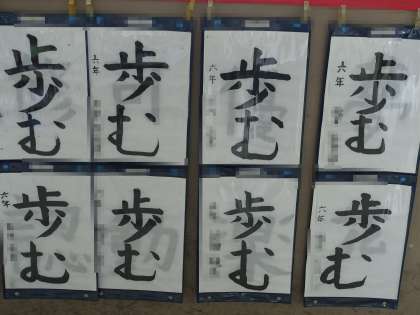 歩む
六年
歩む
六年
歩む
六年
歩む
六年
歩む
歩む
歩む
六年
歩む